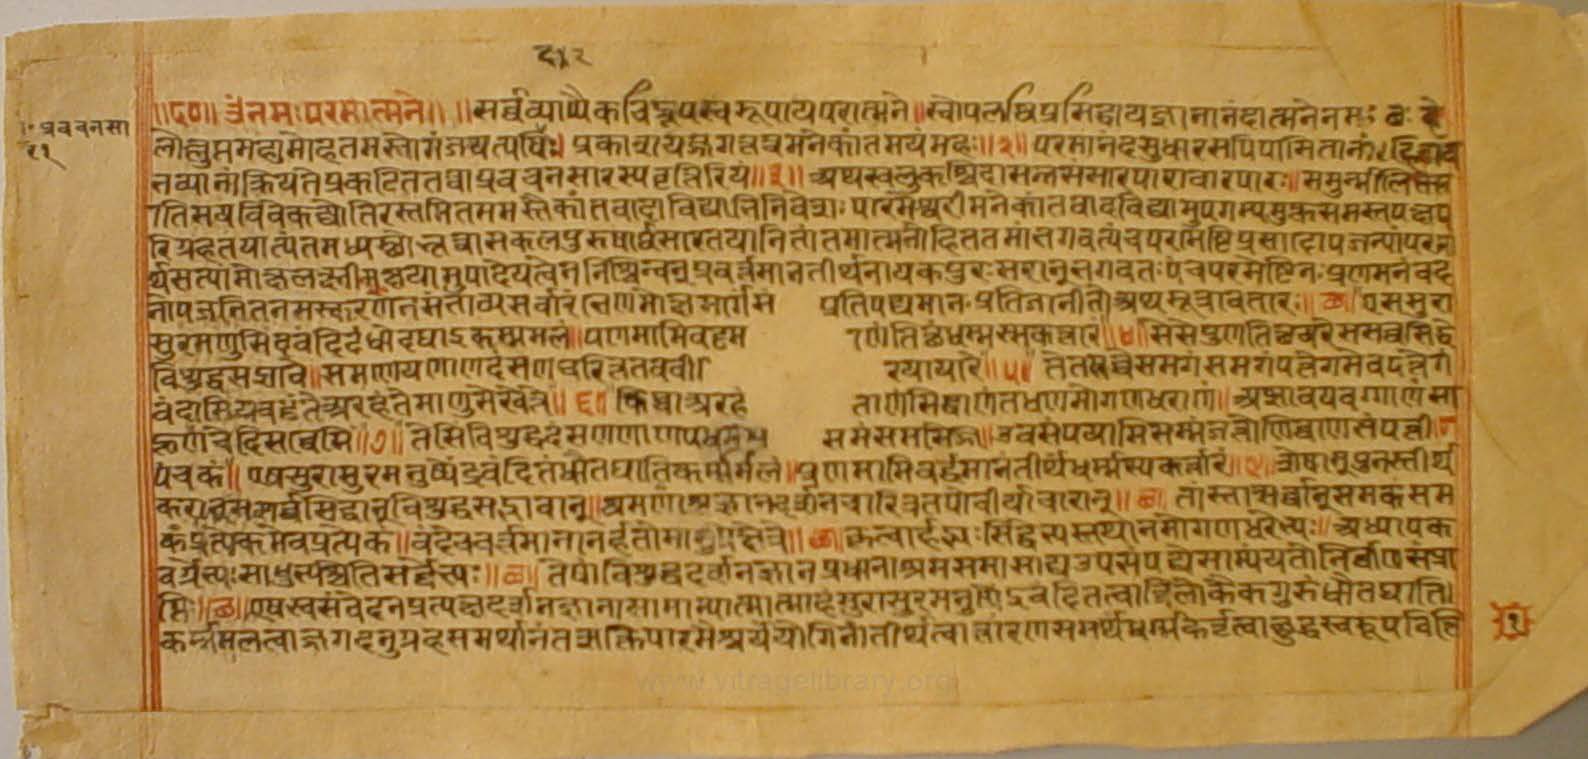 ८४२
॥६०॥ उँ नमः परमात्मने॥ ॥सर्वव्याप्येकचिद्रूपस्वरूपायपरात्मने॥स्वोपलब्धिप्रसिद्धायज्ञानानंदात्मनेनमः
प्रवचनसा
लोल्लुप्तमहामोहतमस्तोमंजयत्यदः। प्रकाशयज्जगत्तत्वमनेकांतमयंमहः॥२॥ परमानंदसुधारसपिपासितानां
नव्यानां।क्रियतेप्रकटिततत्वाप्रवचनसारस्यवृत्तिरियं॥३॥ अथखलुकश्चिदासन्नसंसारपारावारपारः॥समुन्मीलित
तिसयविवेकज्योतिरस्तमितसमस्तैकांतवादाविद्यानिनिवेशः पारमेश्वरीमनेकांतवादविद्यामुपगम्यमुक्तसमस्तपक्षप
रिग्रहतयात्यंतमध्यस्थोभूत्वासकलपुरुषार्थसारतयानितांतमात्मनोहिततमांभगवत्पंचपरमेष्टिप्रसादोपजन्यांपरमा
र्थसत्यांमोक्षलक्ष्मीमक्षयामुपादेयत्वेननिश्चिन्वन्प्रवर्त्तमानतीर्थनायकपुरःसरान्भगवतःपंचपरमेष्टिनःप्रणमनवंद
नोपजनितनमस्करणेनसंभाव्यसर्वारंभेणमोक्षमार्गसं प्रतिपद्यमानःप्रतिजानीते॥अथसूत्रावतारः॥ एससुरा
सुरमणुसिंदवंदिदंधोदघाइकम्ममलं॥पणमामिवट्टमा णंतित्थंधम्मस्सकत्तारं॥४॥सेसेपुणतित्थयरेससव्वसिद्धे
विशुद्धसप्नावे॥समणेयणाणदंसणचरित्ततववी रयायारे॥५॥ तेतेसव्वेसमगंसमगंपत्तेगमेवपत्तेगं
वंदामियवट्टंतेअरहंतेमाणुसेखेत्ते॥६॥ किच्चाअरहं ताणंसिद्धाणंतधणमोगणधराणं॥अप्नावयवग्गाणंसा
हूणंचेदिसव्वेसिं॥७॥ तेसिंविशुद्धदंसणणाण समंसमासिज्ज॥उवसंपयामिसम्मंजत्तोणिव्वाणसंपत्ती॥
पंचकं॥ एषसुरासुरमनुष्येंद्रवंदितंधौतघातिकर्ममलं॥प्रणमामिवर्द्धमानंतीर्थंधर्मस्यकर्त्तारं॥ शेषान्पुनस्तीर्थ
करान्ससर्वसिद्धान्विशुद्धसद्भावान्॥श्रमणांश्चज्ञानदर्शनचारित्रतपोवीर्याचारान्॥ तांस्तान्सर्वान्समकंसम
कंप्रत्येकमेवप्रत्येकं॥वंदेचवर्त्तमानानर्हतोमानुषेक्षेत्रे॥ कृत्वार्हद्भ्यःसिद्धेभ्यस्तथानमोगणधरेभ्यः॥अध्यापक
वर्गेभ्यःसाधुभ्यश्चेतिसर्वेभ्यः॥ तेषांविशुद्धदर्शनज्ञानप्रधानाश्रमंसमासाद्यउपसंपद्येसाम्यंयतोनिर्वाणसंप्रा
प्तिः॥ एषस्वसंवेदनप्रत्यक्षदर्शनज्ञानसामान्यात्मात्माहंसुरासुरमनुष्येंद्रवंदितत्वात्त्रिलोकैकगुरुंधौतघाति
कर्ममलत्वाज्जगदनुग्रहसमर्थानंतशक्तिपारमैश्वर्यंयोगिनांतीर्थत्वात्तारणसमर्थंधर्मकर्तृत्वाच्छुद्धस्वरूपवृत्ति
१
www.vitragelibrary.org